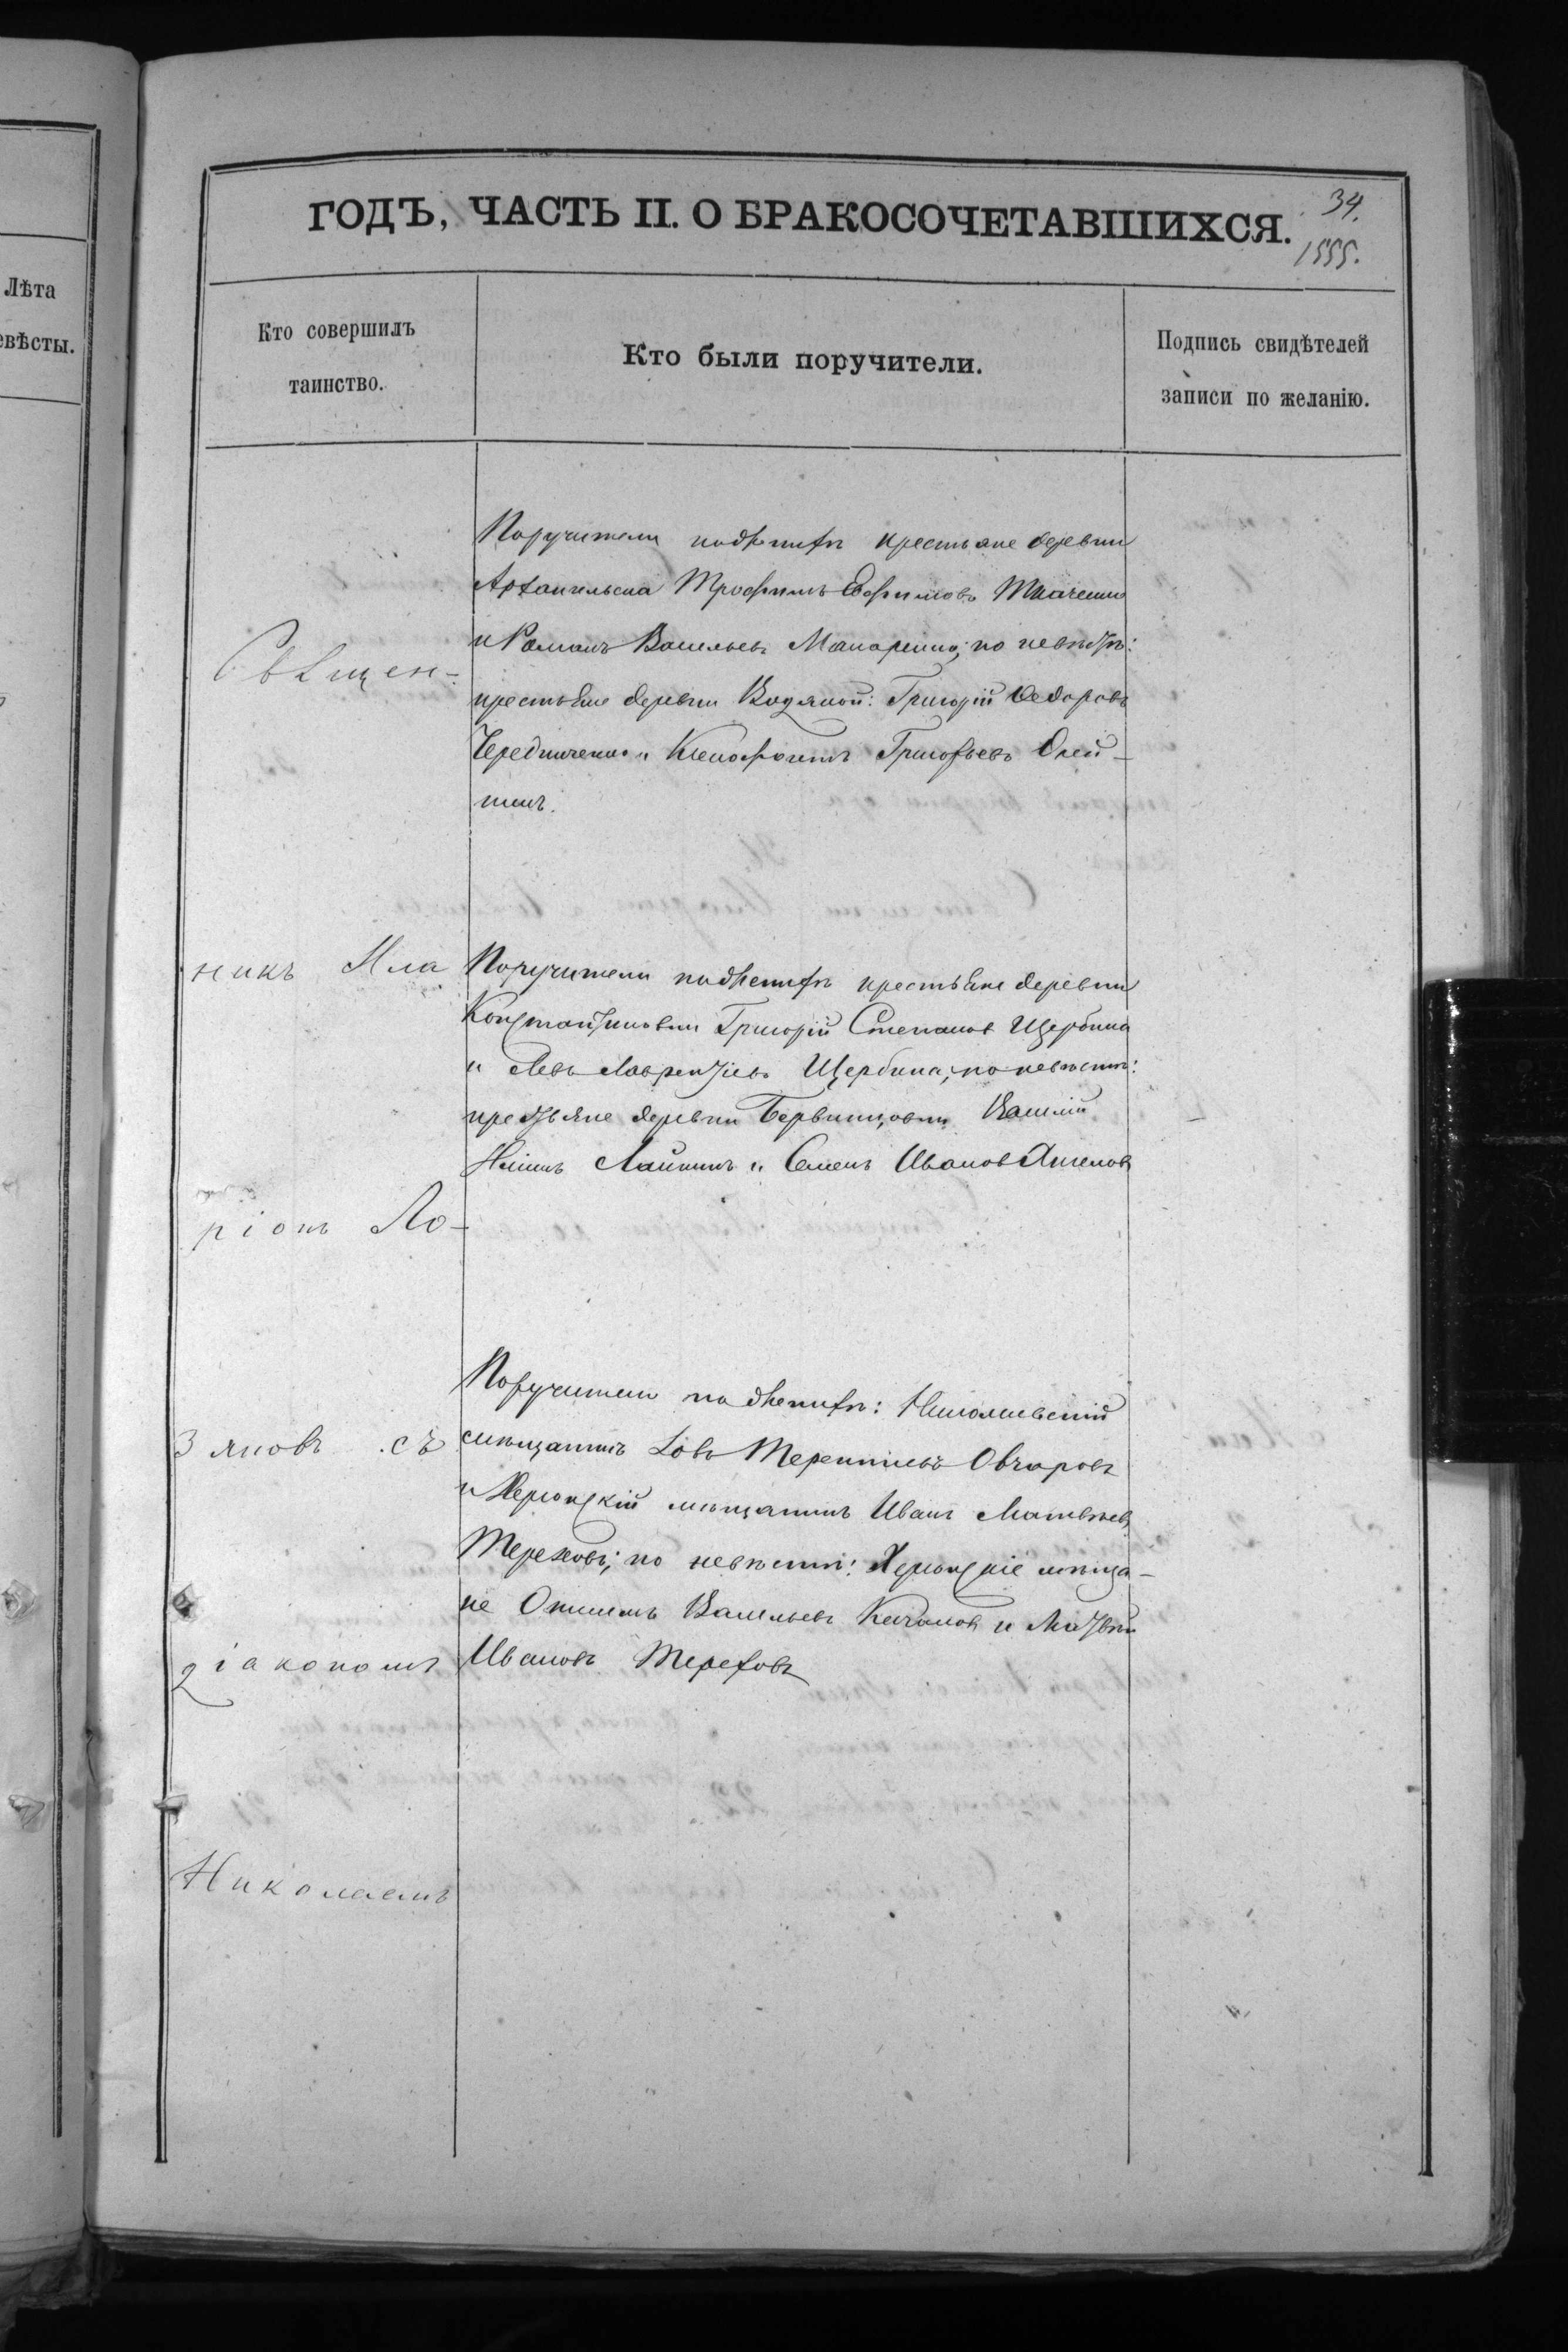 Лѣта
евѣсты.
ГОДЪ, ЧАСТЬ II. О БРАКОСОЧЕТАВШИХСЯ.
34.
1555.
Кто совершилъ
таинство.
Кто были поручители.
Подпись свидѣтелей
записи по желанію.
Поручители по женихѣ крестьяне деревни
Архангельска Трофимъ Ефимовъ Ткаченко
и Романъ Васильевъ Макаренко; по невѣстѣ:
крестьяне деревни Водяной: Григорій Ѳедоровъ
Чередниченко и Ксенофонтъ Григорьевъ Олей-
никъ.
Поручители по женихѣ крестьяне деревни
Константиновки Григорій Степановъ Щербина
и Левъ Лаврентіевъ Щербина; по невѣстѣ:
крестьяне деревни Василій
Ильинъ и Семенъ Ивановъ
Поручители по женихѣ: Николаевскій
мѣщанинъ Іовъ Терентіевъ Овчаровъ
и Херсонскій мѣщанинъ Иванъ Матвѣевъ
Тереховъ; по невѣстѣ: Херсонскіе мѣща-
не Онисимъ Васильевъ Качановъ и Матвѣй
Ивановъ Тереховъ
Священ-
никъ Ила
ріонъ Ло-
зяновъ съ
діакономъ
Николаемъ